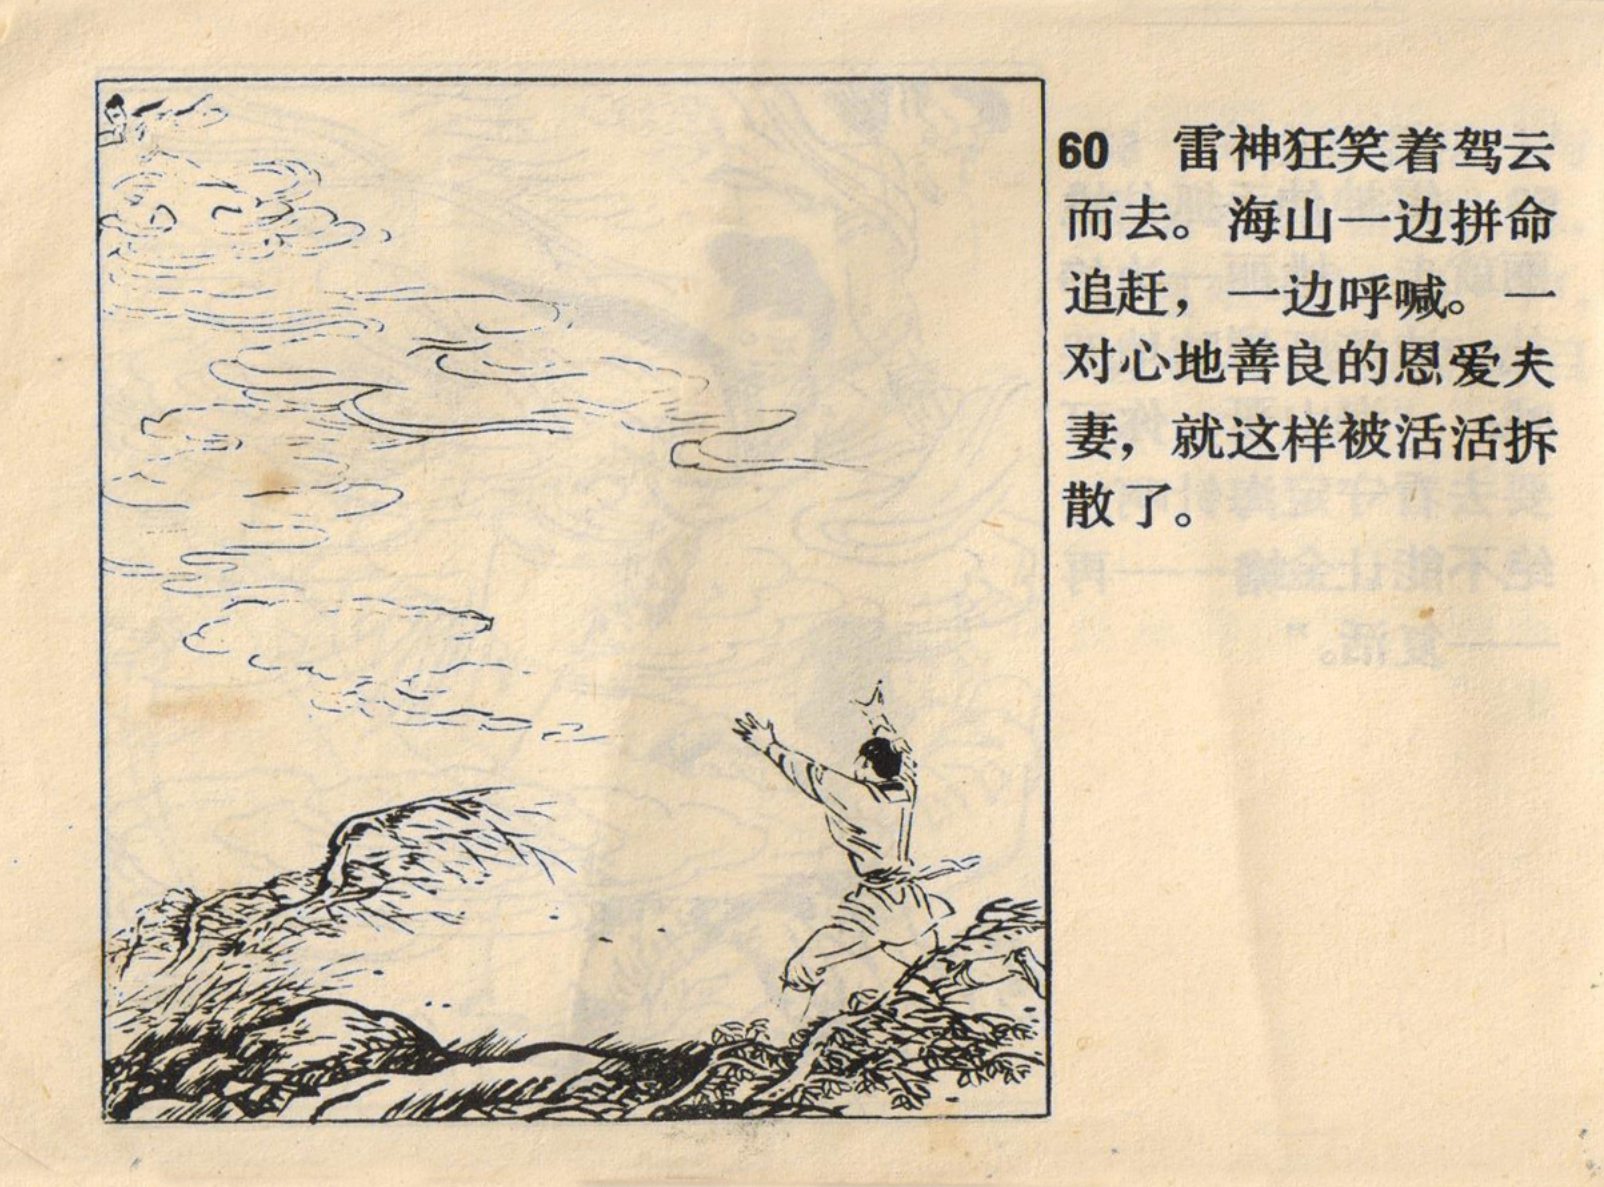 60 雷神狂笑着驾云
而去。海山一边拼命
追赶，一边呼喊。一
对心地善良的恩爱夫
妻，就这样被活活拆
散了。